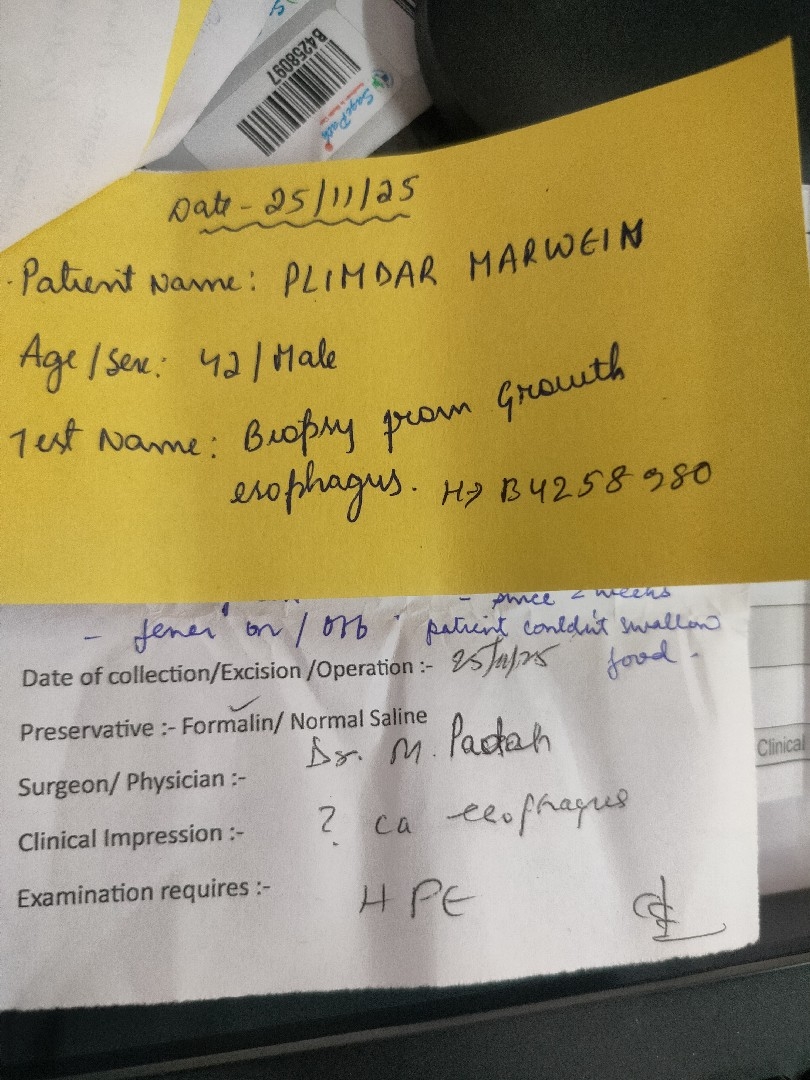 B4258097
SagePath
Date - 25/11/25
Patient Name: PLIMDAR MARWEIN
Age/Sex: 42/Male
Test Name: Biopsy from Growth
esophagus. H→ B4258980
- since 2 weeks
- fever on/off patient couldn't swallow
food.
Date of collection/Excision /Operation :- 25/11/25
Preservative :- Formalin/ Normal Saline
Surgeon/ Physician :- Dr. M. Padah
Clinical Impression :- ? ca esophagus
Examination requires :- HPE
Clinical